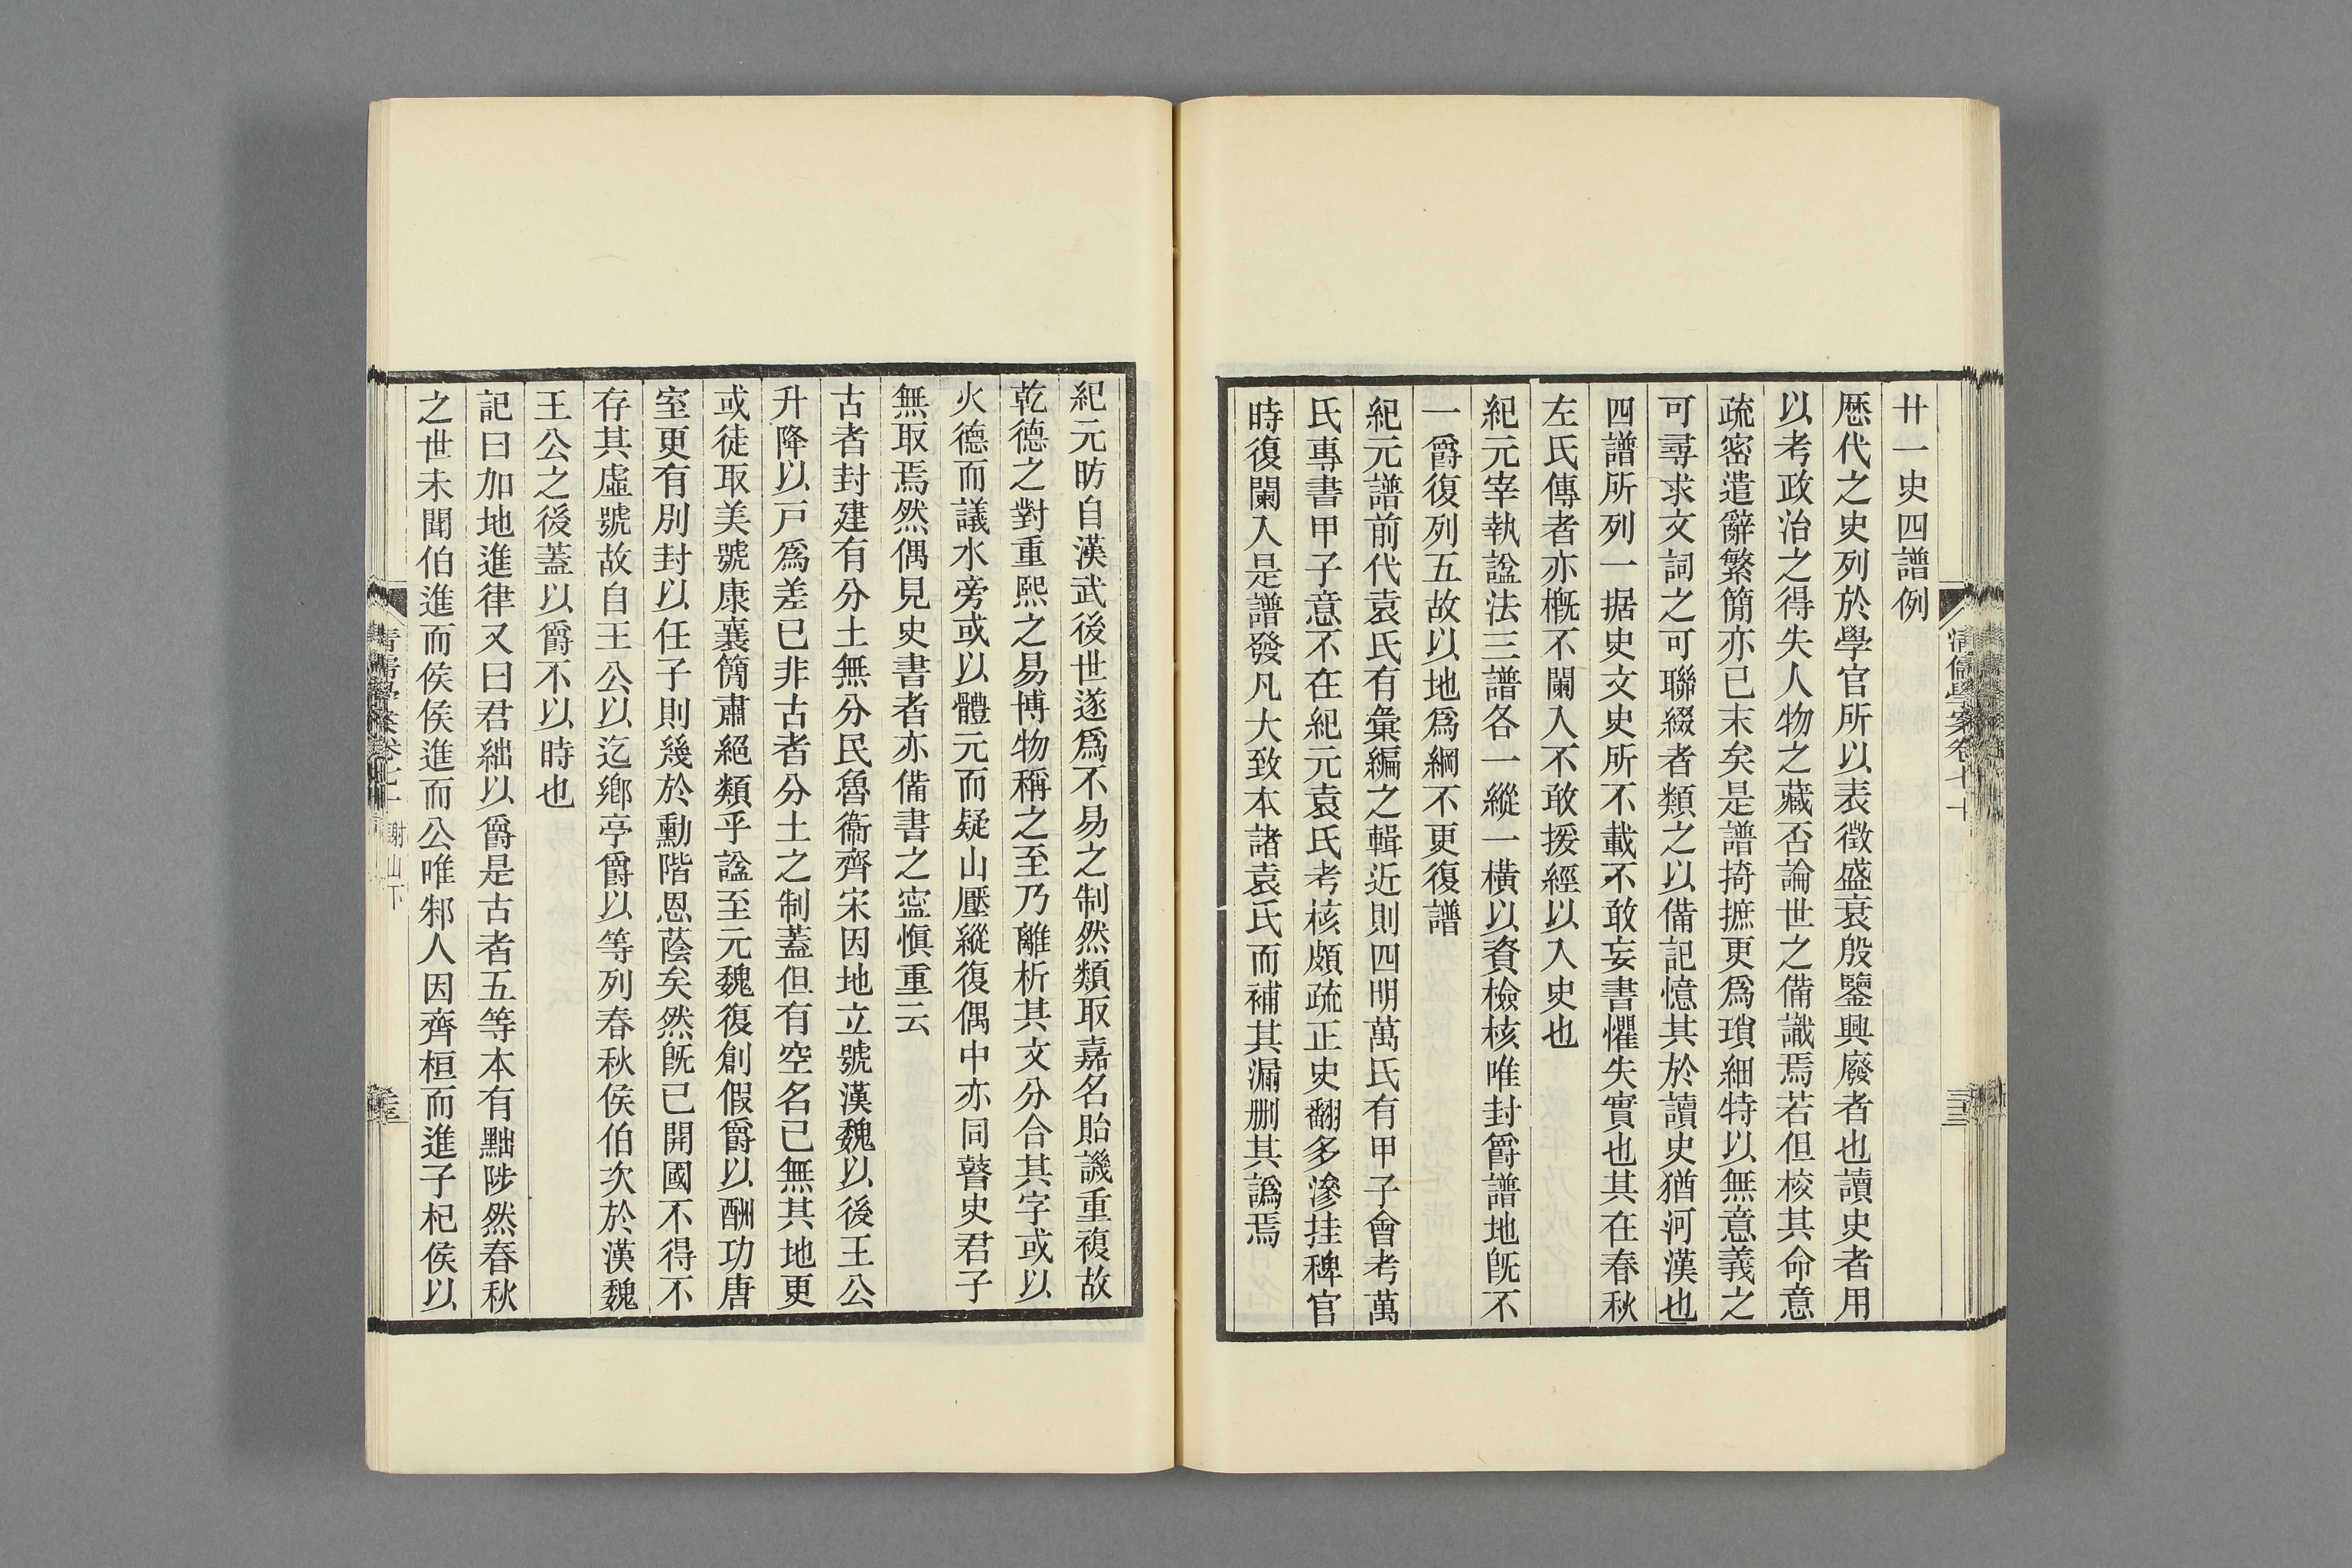 廿一史四譜例
歷代之史列於學官所以表徵盛衰殷鑒興廢者也讀史者用
以考政治之得失人物之藏否論世之備識焉若但核其命意
疏密遣辭繁簡亦已末矣是譜掎摭更爲瑣細特以無意義之
可尋求文詞之可聯綴者類之以備記憶其於讀史猶河漢也
四譜所列一据史文史所不載不敢妄書懼失實也其在春秋
左氏傳者亦槪不闌入不敢援經以入史也
紀元宰執諡法三譜各一縱一橫以資檢核唯封爵譜地旣不
一爵復列五故以地爲綱不更復譜
紀元譜前代袁氏有彙編之輯近則四明萬氏有甲子會考萬
氏專書甲子意不在紀元袁氏考核頗疏正史翻多滲挂稗官
時復闌入是譜發凡大致本諸袁氏而補其漏删其譌焉
紀元昉自漢武後世遂爲不易之制然類取嘉名貽譏重複故
乾德之對重熙之易博物稱之至乃離析其文分合其字或以
火德而議水旁或以體元而疑山壓縱復偶中亦同瞽史君子
無取焉然偶見史書者亦備書之寍愼重云
古者封建有分土無分民魯衞齊宋因地立號漢魏以後王公
升降以戸爲差已非古者分土之制蓋但有空名已無其地更
或徒取美號康襄簡肅絕類乎諡至元魏復創假爵以酬功唐
室更有別封以任子則幾於勳階恩蔭矣然旣已開國不得不
存其虛號故自王公以迄鄉亭爵以等列春秋侯伯次於漢魏
王公之後蓋以爵不以時也
記曰加地進律又曰君絀以爵是古者五等本有黜陟然春秋
之世未聞伯進而侯侯進而公唯邾人因齊桓而進子杞侯以
清儒學案卷七十
謝山下